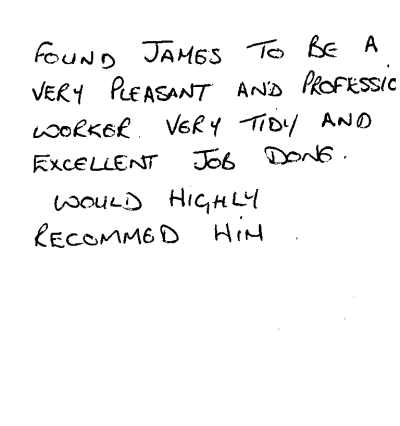 FOUND JAMES TO BE A
VERY PLEASANT AND PROFESSIO
WORKER. VERY TIDY AND
EXCELLENT JOB DONE.
WOULD HIGHLY
RECOMMED HIM .